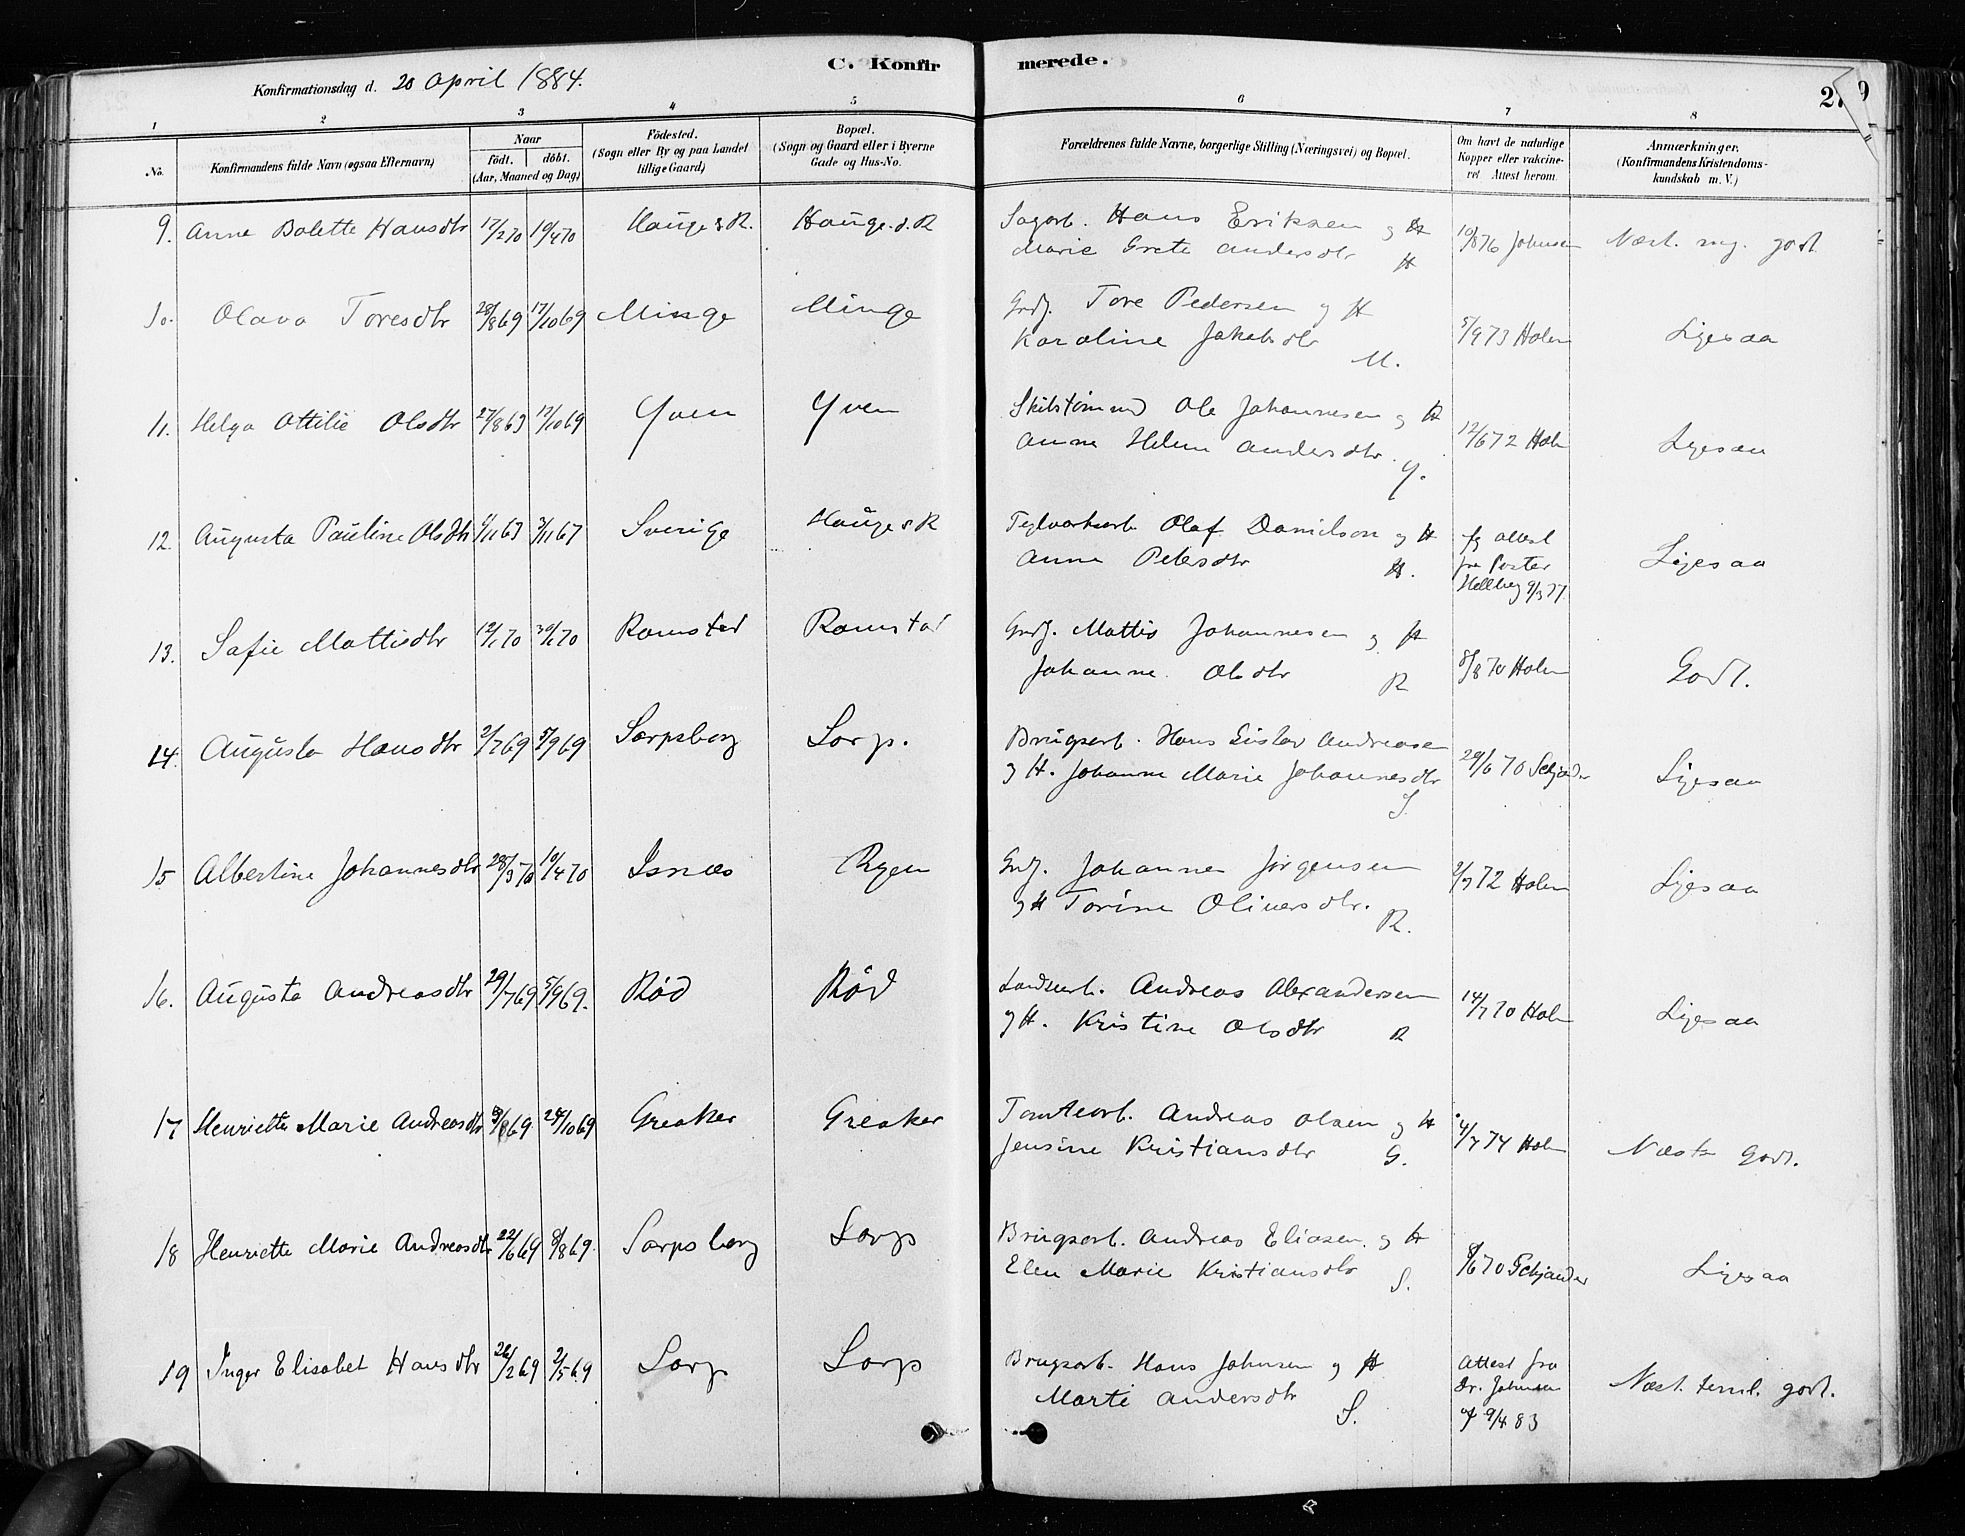 C. Konfirmerede.
Konfirmationsdag d. 20 April 1884.
1 2 3 4 5 6 7 8
No.
Konfirmandens fulde Navn (ogsaa Efternavn)
Naar
födt. döbt.
(Aar, Maaned og Dag)
Födested.
(Sogn eller By og paa Landet
tillige Gaard)
Bopæl.
(Sogn og Gaard eller i Byerne
Gade og Hus-No.
Forældrenes fulde Navne, borgerlige Stilling (Næringsvei) og Bopæl.
Om havt de naturlige
Kopper eller vakcine-
ret. Attest herom.
Anmærkninger.
(Konfirmandens Kristendoms-
kundskab m. V.)
9. Anne Bolette Hansdtr 17/2 70 10/4 70 Hauge s R. Hauge. s. R Sagarb. Hans Eriksen og H
Marie Grete Andersdtr H 10/8 76 Johnsen Næst. mg. godt
10. Olava Toresdtr 28/8 69 17/10 69 Minge Minge Grdj. Tore Pedersen og H
Karoline Jakobsdtr M. 5/9 73 Holm Ligesaa
11. Helga Attilie Olsdtr 27/8 63 17/10 69 Yven Yven Ole Johannesen og H
Anne Helene Andersdtr. Y. 12/6 72 Holm Ligesaa
12. Augusta Pauline Olsdtr 1/11 63 3/11 67 Sverige Hauge s R Teglværksarb Olaf Danielson og H
Anne Petersdtr H. Attest
fra Pastor
Hellberg 9/3 77. Ligesaa
13. Safie Mattisdtr 12/1 70 30/1 70 Romstad Romstad Grdj. Mattis Johannesen og H
Johanne Olsdtr R 8/8 70 Holm Godt.
14. Augusta Hansdtr 2/7 69 5/9 69 Sarpsborg Sarp. Brugsarb. Hans Gustav Andreasen
og H. Johanne Marie Johannesdtr S. 29/6 70 Schjander Ligesaa
15 Albertine Johannesdtr 28/3 70 10/4 70 Isnæs Rygen Grdj. Johannes Jørgensen
og H Torine Oliversdtr. R. 2/7 72 Holm Ligesaa
16. Augusta Andreasdtr 29/7 69. 5/9 69. Röd Röd Andreas Alexandersen
og H. Kristine Olsdtr R 14/7 70 Holm Ligesaa
17 Henriette Marie Andreasdtr 3/8 69 24/10 69 Greaker Greaker Tomtearb. Andreas Olsen og H
Jensine Kristiansdtr G. 4/7 74 Holm Næsten Godt.
18 Henriette Marie Andreasdtr 22/6 69 8/8 69. Sarpsborg Sarp Brugsarb. Andreas Eliasen. og H
Elen Marie Kristiansdtr S. 8/6 70 Schjander Ligesaa
19 Inger Elisabet Hansdtr 26/2 69 2/5 69 Sarp Sarp Brugsarb. Hans Johnsen og H
Marte Andersdtr S. Attest fra
Dr. Johnsen
af 9/4 83 Næst. teml. godt.